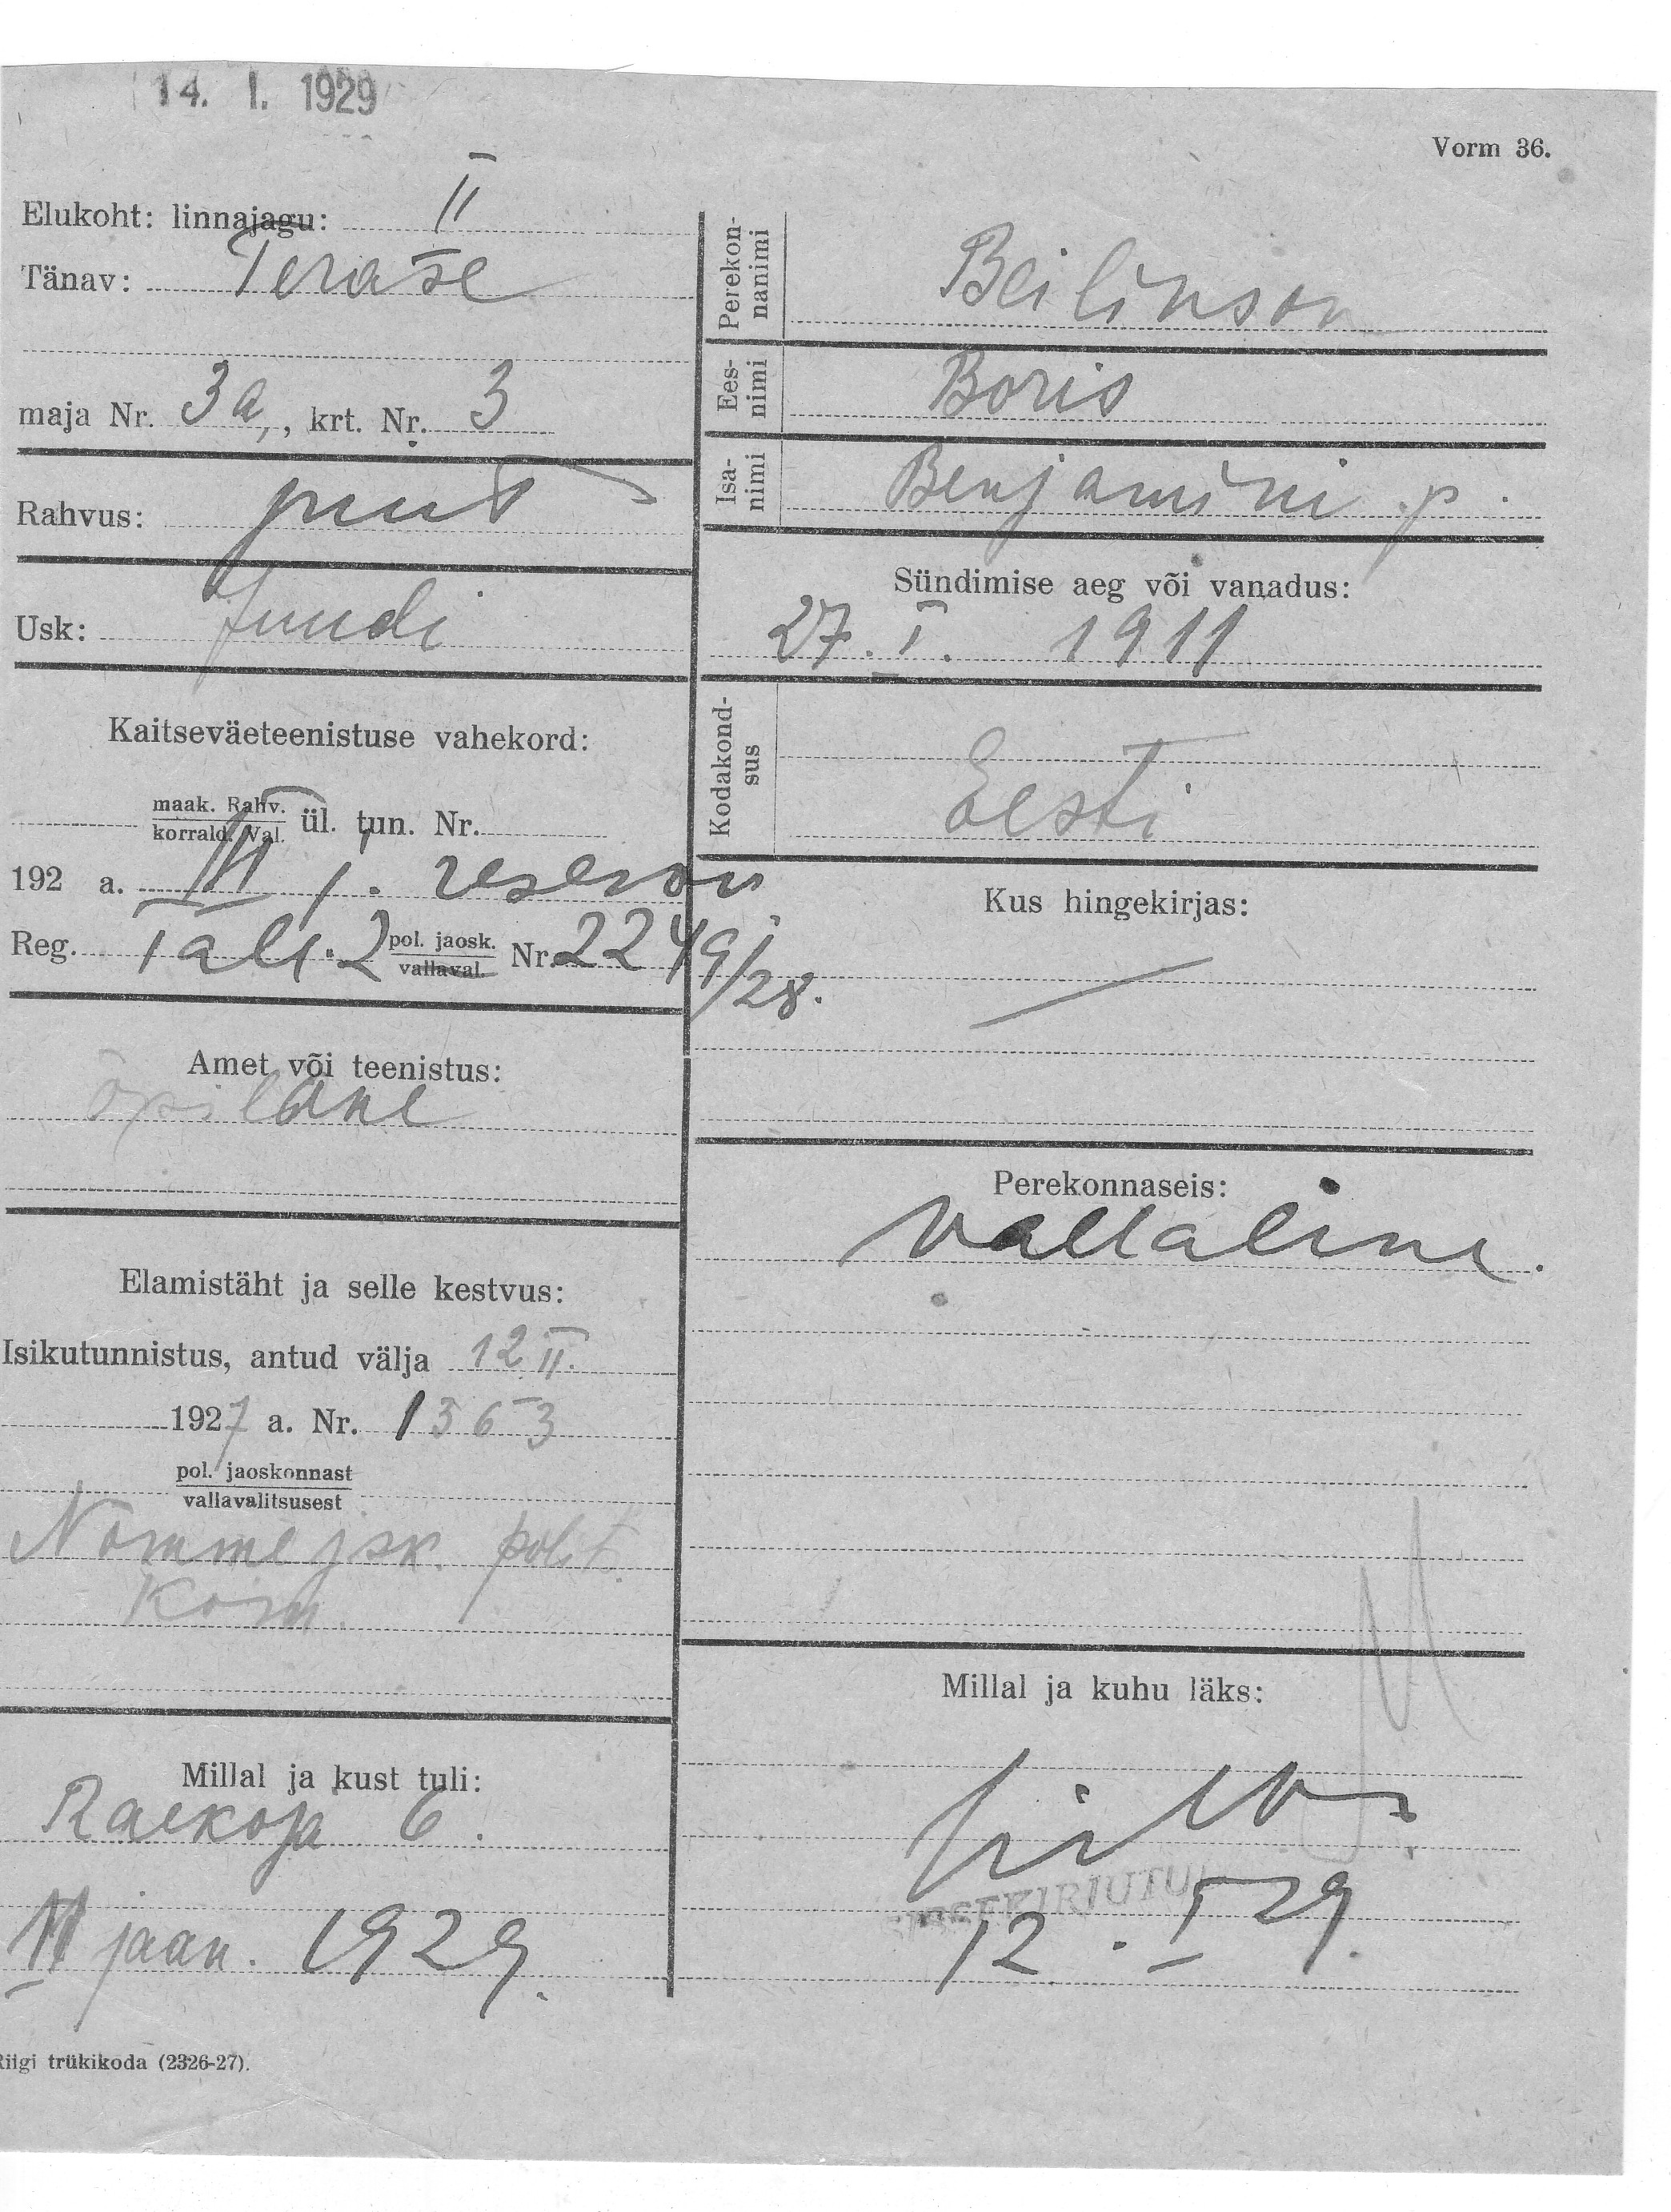 14. I. 1929
Vorm 36.
Elukoht: linnajagu: II
Tänav: Terase
maja Nr. 3a, , krt. Nr. 3
Rahvus: juut
Usk: Juudi
Kaitseväeteenistuse vahekord:
maak. Rahv.
korrald. Val. ül. tun. Nr.
192 a. III j. reservv
Reg. Tall. 2 pol. jaosk. Nr. 2249/28.
vallaval.
Amet või teenistus:
õpilane
Elamistäht ja selle kestvus:
Isikutunnistus, antud välja 12 II.
1927 a. Nr. 1363
pol. jaoskonnast
vallavalitsusest
Nõmme jsk. polit.
Kom.
Millal ja kust tuli:
Raekoja 6.
11 jaan. 1929.
Riigi trükikoda (2326-27).
Perekon-
nanimi Beilinson
Ees-
nimi Boris
Isa-
nimi Benjamini p.
Sündimise aeg või vanadus:
27. I. 1911
Kodakond-
sus Eesti
Kus hingekirjas:
Perekonnaseis:
Vallaline.
Millal ja kuhu läks:
12. I 29.